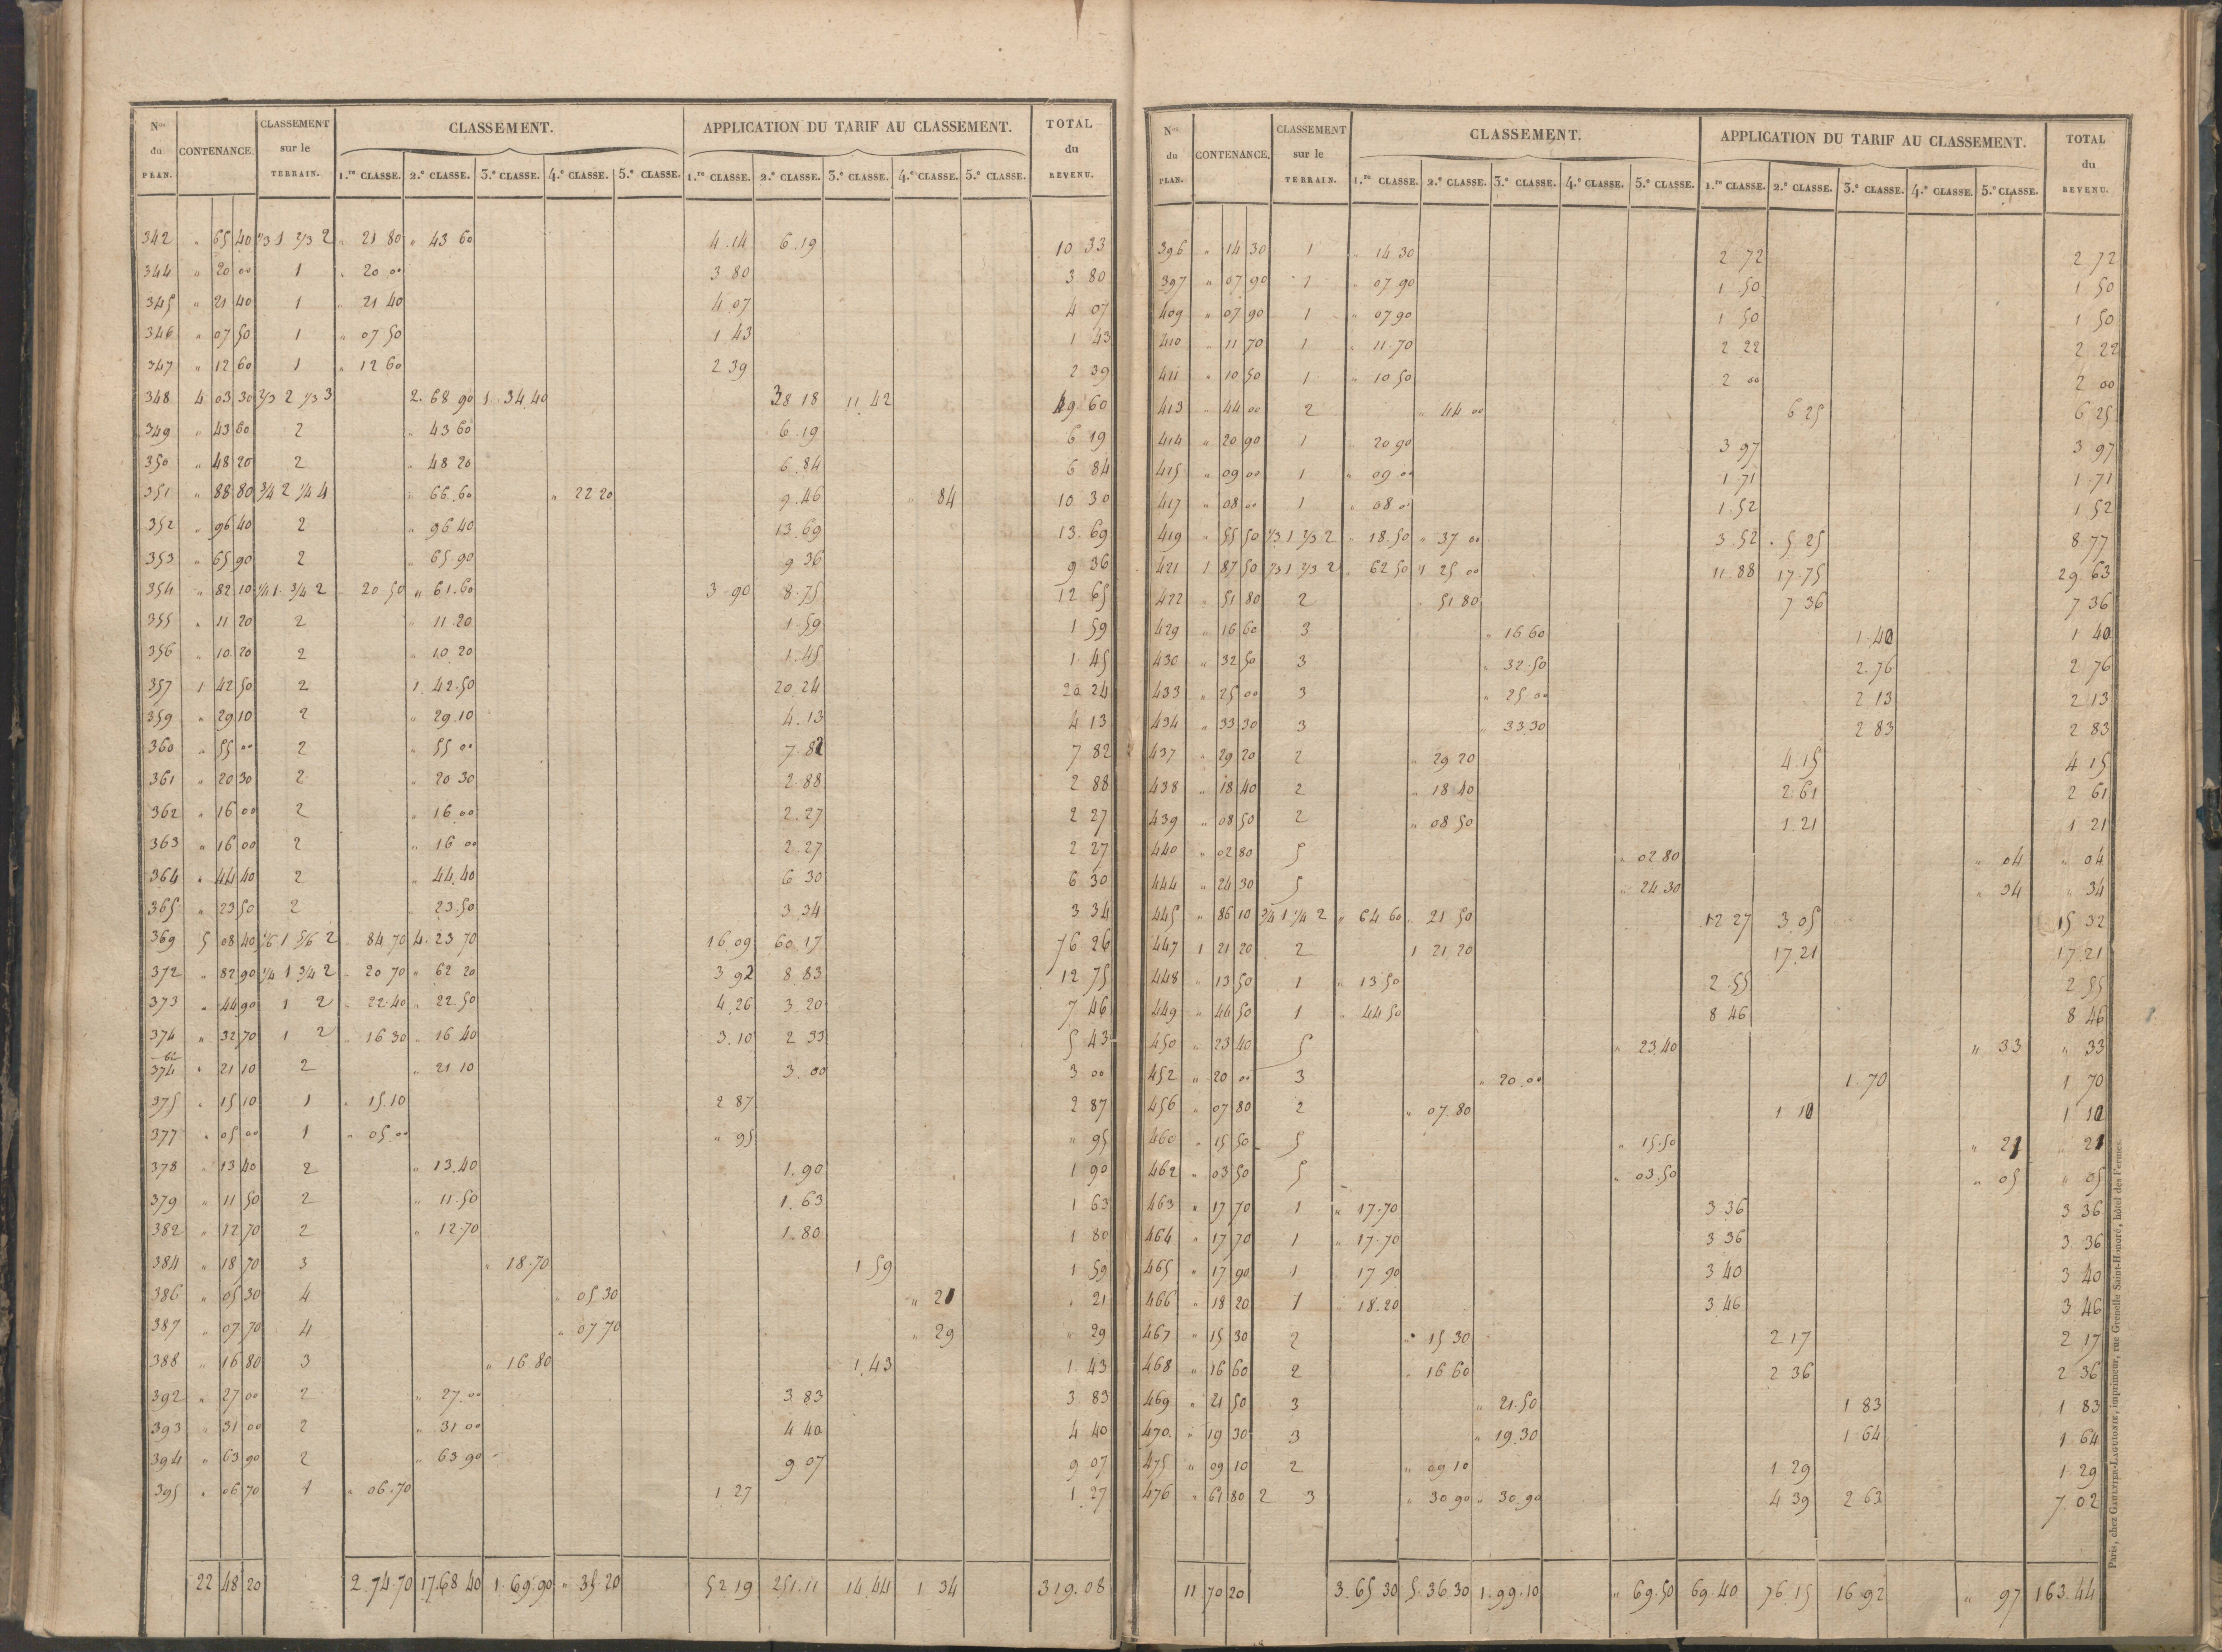 Nos du PLAN. CONTENANCE. CLASSEMENT sur le TERRAIN. CLASSEMENT. APPLICATION DU TARIF AU CLASSEMENT. TOTAL du REVENU.
1.re CLASSE. 2.e CLASSE. 3.e CLASSE. 4.e CLASSE. 5.e CLASSE. 1.re CLASSE. 2.e CLASSE. 3.e CLASSE. 4.e CLASSE. 5.e CLASSE.
342 " 65 40 1/3 1 2/3 2 " 21 80 " 43 60 4.14 6.19 10 33
344 " 20 00 1 " 20 00 3 80 3 80
345 " 21 40 1 " 21 40 4 07 4 07
346 " 07 50 1 " 07 50 1 43 1 43
347 " 12 60 1 " 12 60 2 39 2 39
348 4 03 30 2/3 2 1/3 3 2. 68 90 1. 34.40 38 18 11 42 49 60
349 " 43 60 2 " 43 60 6.19 6 19
350 " 48 20 2 " 48 20 6.84 6 84
351 " 88 80 3/4 2 1/4 4 " 66.60 " 22 20 9.46 " 84 10 30
352 " 96 40 2 " 96 40 13.69 13.69
353 " 65 90 2 " 65.90 9 36 9 36
354 " 82 10 1/4 1 3/4 2 " 20 50 " 61.60 3.90 8.75 12 65
355 " 11 20 2 " 11.20 1.59 1 59
356 " 10 20 2 " 10 20 1.45 1.45
357 1 42 50 2 1. 42.50 20.24 20 24
359 " 29 10 2 " 29.10 4.13 4 13
360 " 55 00 2 " 55 00 7.82 7 82
361 " 20 30 2 " 20 30 2.88 2 88
362 " 16 00 2 " 16.00 2.27 2 27
363 " 16 00 2 " 16 00 2.27 2 27
364 " 44 40 2 " 44.40 6 30 6 30
365 " 23 50 2 " 23.50 3.34 3 34
369 5 08 40 1/6 1 5/6 2 " 84 70 4. 23 70 16.09 60.17 76 26
372 " 82 90 1/4 1 3/4 2 " 20 70 " 62 20 3 92 8 83 12 75
373 " 44 90 1 2 " 22.40 " 22.50 4.26 3 20 7 46
374 " 32 70 1 2 " 16 30 " 16 40 3.10 2 33 5 43
374 bis " 21 10 2 " 21 10 3.00 3 00
375 " 15 10 1 " 15.10 2 87 2 87
377 " 05 00 1 " 05.00 " 95 " 95
378 " 13 40 2 " 13.40 1.90 1 90
379 " 11 50 2 " 11.50 1.63 1 63
382 " 12 70 2 " 12.70 1.80 1 80
384 " 18 70 3 " 18.70 1 59 1 59
386 " 05 30 4 " 05 30 " 21 " 21
387 " 07 70 4 " 07 70 " 29 " 29
388 " 16 80 3 " 16 80 1.43 1.43
392 " 27 00 2 " 27.00 3 83 3 83
393 " 31 00 2 " 31 00 4 40 4 40
394 " 63 90 2 " 63 90 9 07 9 07
395 " 06 70 1 " 06.70 1 27 1 27
22 48 20 2.74.70 17.68 40 1.69.90 " 35.20 52 19 251.11 14.44 1 34 319.08
Nos du PLAN. CONTENANCE. CLASSEMENT sur le TERRAIN. CLASSEMENT. APPLICATION DU TARIF AU CLASSEMENT. TOTAL du REVENU.
1.re CLASSE. 2.e CLASSE. 3.e CLASSE. 4.e CLASSE. 5.e CLASSE. 1.re CLASSE. 2.e CLASSE. 3.e CLASSE. 4.e CLASSE. 5.e CLASSE.
396 " 14 30 1 " 14 30 2 72 2 72
397 " 07 90 1 " 07.90 1 50 1 50
409 " 07 90 1 " 07 90 1 50 1 50
410 " 11 70 1 " 11.70 2 22 2 22
411 " 10 50 1 " 10 50 2 00 2 00
413 " 44 00 2 " 44 00 6 25 6 25
414 " 20 90 1 " 20 90 3 97 3 97
415 " 09 00 1 " 09 00 1.71 1.71
417 " 08 00 1 " 08 00 1.52 1 52
419 " 55 50 1/3 1 2/3 2 " 18.50 " 37 00 3 52 5 25 8.77
421 1 87 50 1/3 1 2/3 2 " 62 50 1 25 00 11.88 17.75 29.63
422 " 51 80 2 " 51 80 7 36 7 36
429 " 16 60 3 " 16 60 1.40 1 40
430 " 32 50 3 " 32.50 2.76 2 76
433 " 25 00 3 " 25 00 2 13 2 13
434 " 33 30 3 " 33.30 2 83 2 83
437 " 29 20 2 " 29 20 4.15 4 15
438 " 18 40 2 " 18 40 2.61 2 61
439 " 08 50 2 " 08 50 1.21 1 21
440 " 02 80 5 " 02 80 " 04 " 04
444 " 24 30 5 " 24.30 " 34 " 34
445 " 86 10 3/4 1 1/4 2 " 64 60 " 21 50 12 27 3.05 15 32
447 1 21 20 2 1 21.20 17.21 17.21
448 " 13 50 1 " 13 50 2.55 2 55
449 " 44 50 1 " 44 50 8 46 8 46
450 " 23 40 5 " 23.40 " 33 " 33
452 " 20 00 3 " 20.00 1.70 1 70
456 " 07 80 2 " 07.80 1 10 1 10
460 " 15 50 5 " 15.50 " 21 " 21
462 " 03 50 5 " 03.50 " 05 " 05
463 " 17 70 1 " 17.70 3 36 3 36
464 " 17 70 1 " 17.70 3 36 3 36
465 " 17 90 1 17 90 3 40 3 40
466 " 18 20 1 " 18.20 3 46 3 46
467 " 15 30 2 " 15 30 2 17 2 17
468 " 16 60 2 " 16 60 2 36 2 36
469 " 21 50 3 " 21.50 1 83 1 83
470 " 19 30 3 " 19.30 1 64 1 64
475 " 09 10 2 " 09 10 1 29 1 29
476 " 61 80 2 3 " 30 90 " 30.90 4 39 2 63 7.02
11 70 20 3.65 30 5.36 30 1.99.10 " 69.50 69.40 76.15 16 92 " 97 163.44
Paris, chez GAULTIER-LAGUIONIE, imprimeur, rue Grenelle Saint-Honoré, hôtel des Fermes.